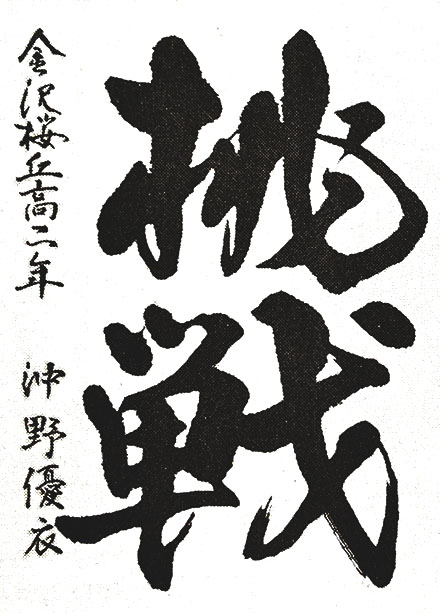 挑戦
金沢桜丘高二年 沖野優衣